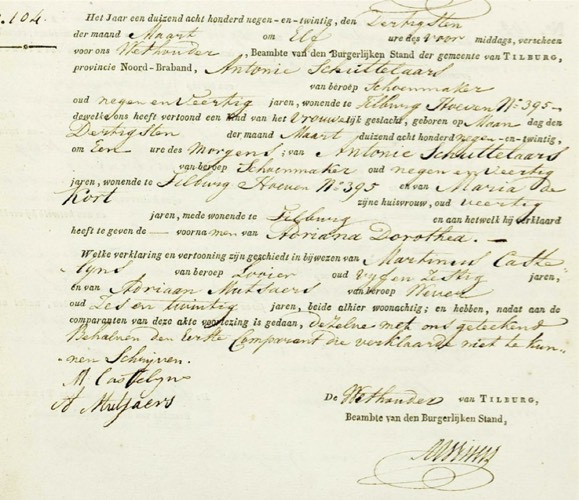 104.
Het Jaar een duizend acht honderd negen-en-twintig, den Dertigsten
der maand Maart om Elf ure des voor middags, verscheen
voor ons Wethouder, Beambte van den Burgerlijken Stand der gemeente van TILBURG,
provincie Noord-Braband, Antonie Schuttelaars
van beroep Schoenmaker
oud negen en veertig jaren, wonende te Tilburg Hoeven No 395
dewelk ons heeft vertoond een kind van het Vrouwelijk geslacht, geboren op Maan dag den
Dertigsten der maand Maart duizend acht honderd negen-en-twintig,
om Een ure des Morgens; van Antonie Schuttelaars
van beroep Schoenmaker oud negen en veertig
jaren, wonende te Tilburg Hoeven No 395 en van Maria de
Kort zijne huisvrouw, oud veertig
jaren, mede wonende te Tilburg en aan hetwelk hij verklaard
heeft te geven de — voornamen van Adriana Dorothea. —
Welke verklaring en vertooning zijn geschiedt in bijwezen van Martinus Caste-
lyns van beroep Looier oud Vyf en Zestig jaren,
en van Adriaan Mutsaers van beroep Wever
oud Zes en twintig jaren, beide alhier woonachtig; en hebben, nadat aan de
comparanten van deze akte voorlezing is gedaan, dezelve met ons geteekend
Behalven den Eerste Comparant die verklaarde niet te kun-
nen Schryven.
M Castelyns
A Mutsaers
De Wethouder van TILBURG,
Beambte van den Burgerlijken Stand,